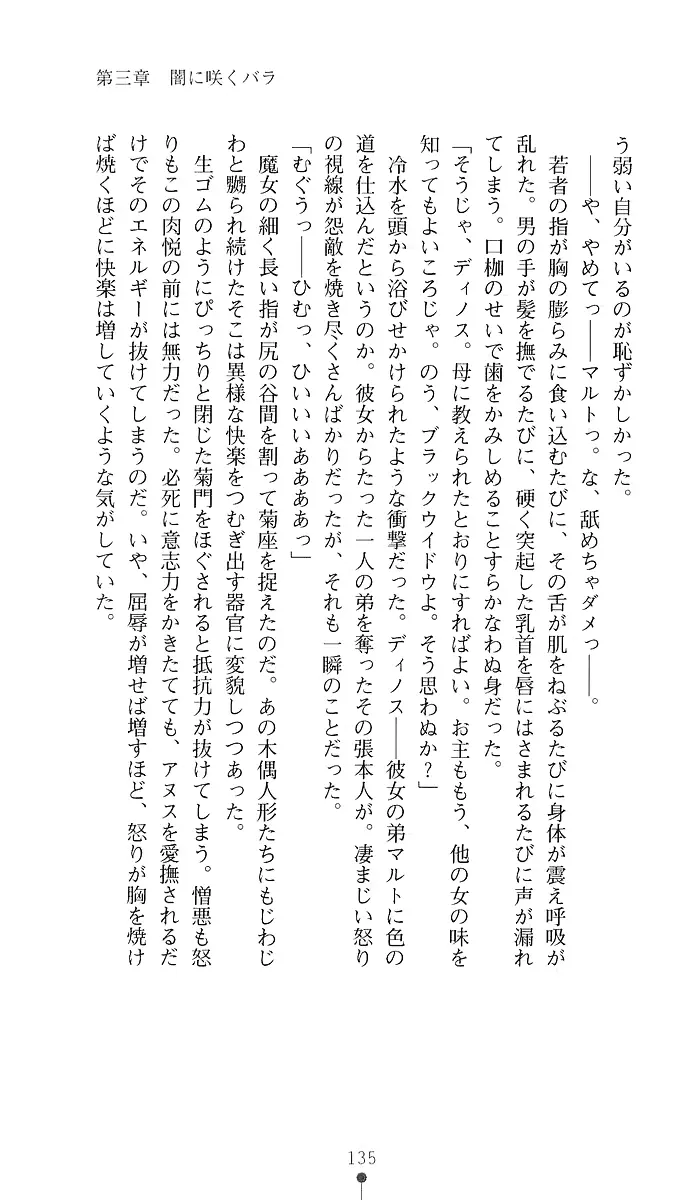 第三章　闇に咲くバラ
う弱い自分がいるのが恥ずかしかった。
――や、やめてっ――マルトっ。な、舐めちゃダメっ――。
若者の指が胸の膨らみに食い込むたびに、その舌が肌をねぶるたびに身体が震え呼吸が
乱れた。男の手が髪を撫でるたびに、硬く突起した乳首を唇にはさまれるたびに声が漏れ
てしまう。口枷のせいで歯をかみしめることすらかなわぬ身だった。
「そうじゃ、ディノス。母に教えられたとおりにすればよい。お主ももう、他の女の味を
知ってもよいころじゃ。のう、ブラックウイドウよ。そう思わぬか？」
冷水を頭から浴びせかけられたような衝撃だった。ディノス――彼女の弟マルトに色の
道を仕込んだというのか。彼女からたった一人の弟を奪ったその張本人が。凄まじい怒り
の視線が怨敵を焼き尽くさんばかりだったが、それも一瞬のことだった。
「むぐうっ――ひむっ、ひいいいああああっ」
魔女の細く長い指が尻の谷間を割って菊座を捉えたのだ。あの木偶人形たちにもじわじ
わと嬲られ続けたそこは異様な快楽をつむぎ出す器官に変貌しつつあった。
生ゴムのようにぴっちりと閉じた菊門をほぐされると抵抗力が抜けてしまう。憎悪も怒
りもこの肉悦の前には無力だった。必死に意志力をかきたてても、アヌスを愛撫されるだ
けでそのエネルギーが抜けてしまうのだ。いや、屈辱が増せば増すほど、怒りが胸を焼け
ば焼くほどに快楽は増していくような気がしていた。
135